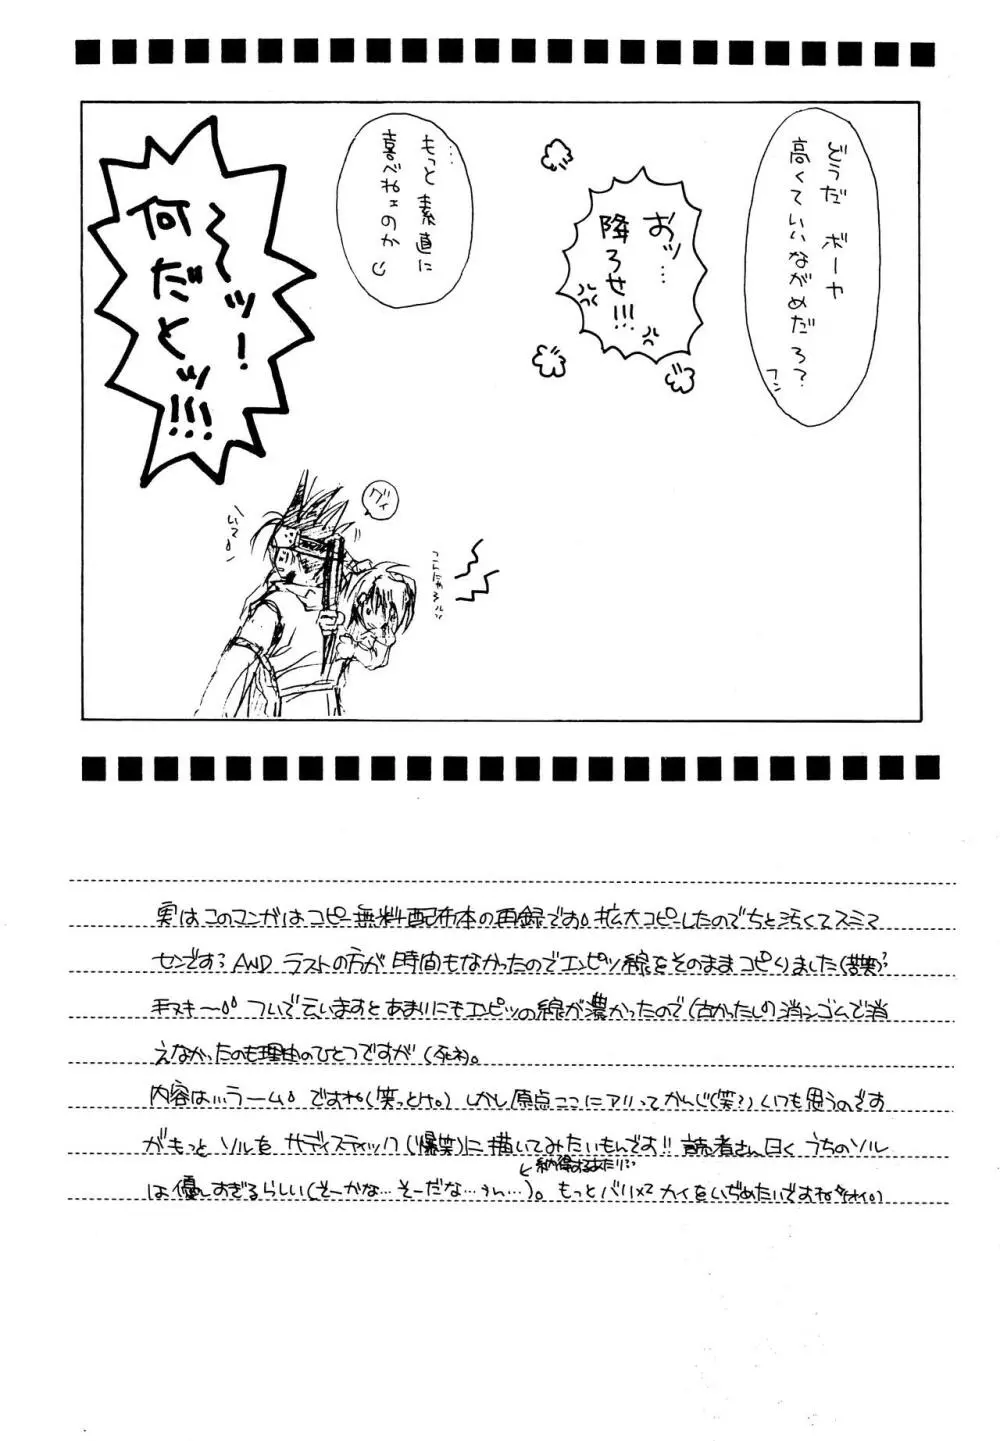 どうだ ボーヤ
高くていいながめだろ?
フン
おッ…
降ろせ!!!
…もっと素直に
喜べねェのか
〜〜ッ!
何だとッ!!!
グイ
いて
こんにゃろ
実はこのマンガはコピー無料配布本の再録です。拡大コピーしたのでちと汚くてスミマ
センです? AND ラストの方が時間もなかったのでエンピツ線をそのままコピりました(苦笑)?
手ヌキ〜 ついで云いますとあまりにもエンピツの線が濃かったので(古かったし)消シゴムで消
えなかったのも理由のひとつですが(死ネ)。
内容は…ラーム。ですね(笑っとけ。)しかし原点ここにアリってかんじ(笑?)いつも思うのです
がもっとソルをサディスティック(爆笑)に描いてみたいもんです!! 読者さん曰くうちのソル
納得するあたり…
は優しすぎるらしい(そーかな…そーだな…うん…)。もっとバリバリカイをいぢめたいですね(オイ。)